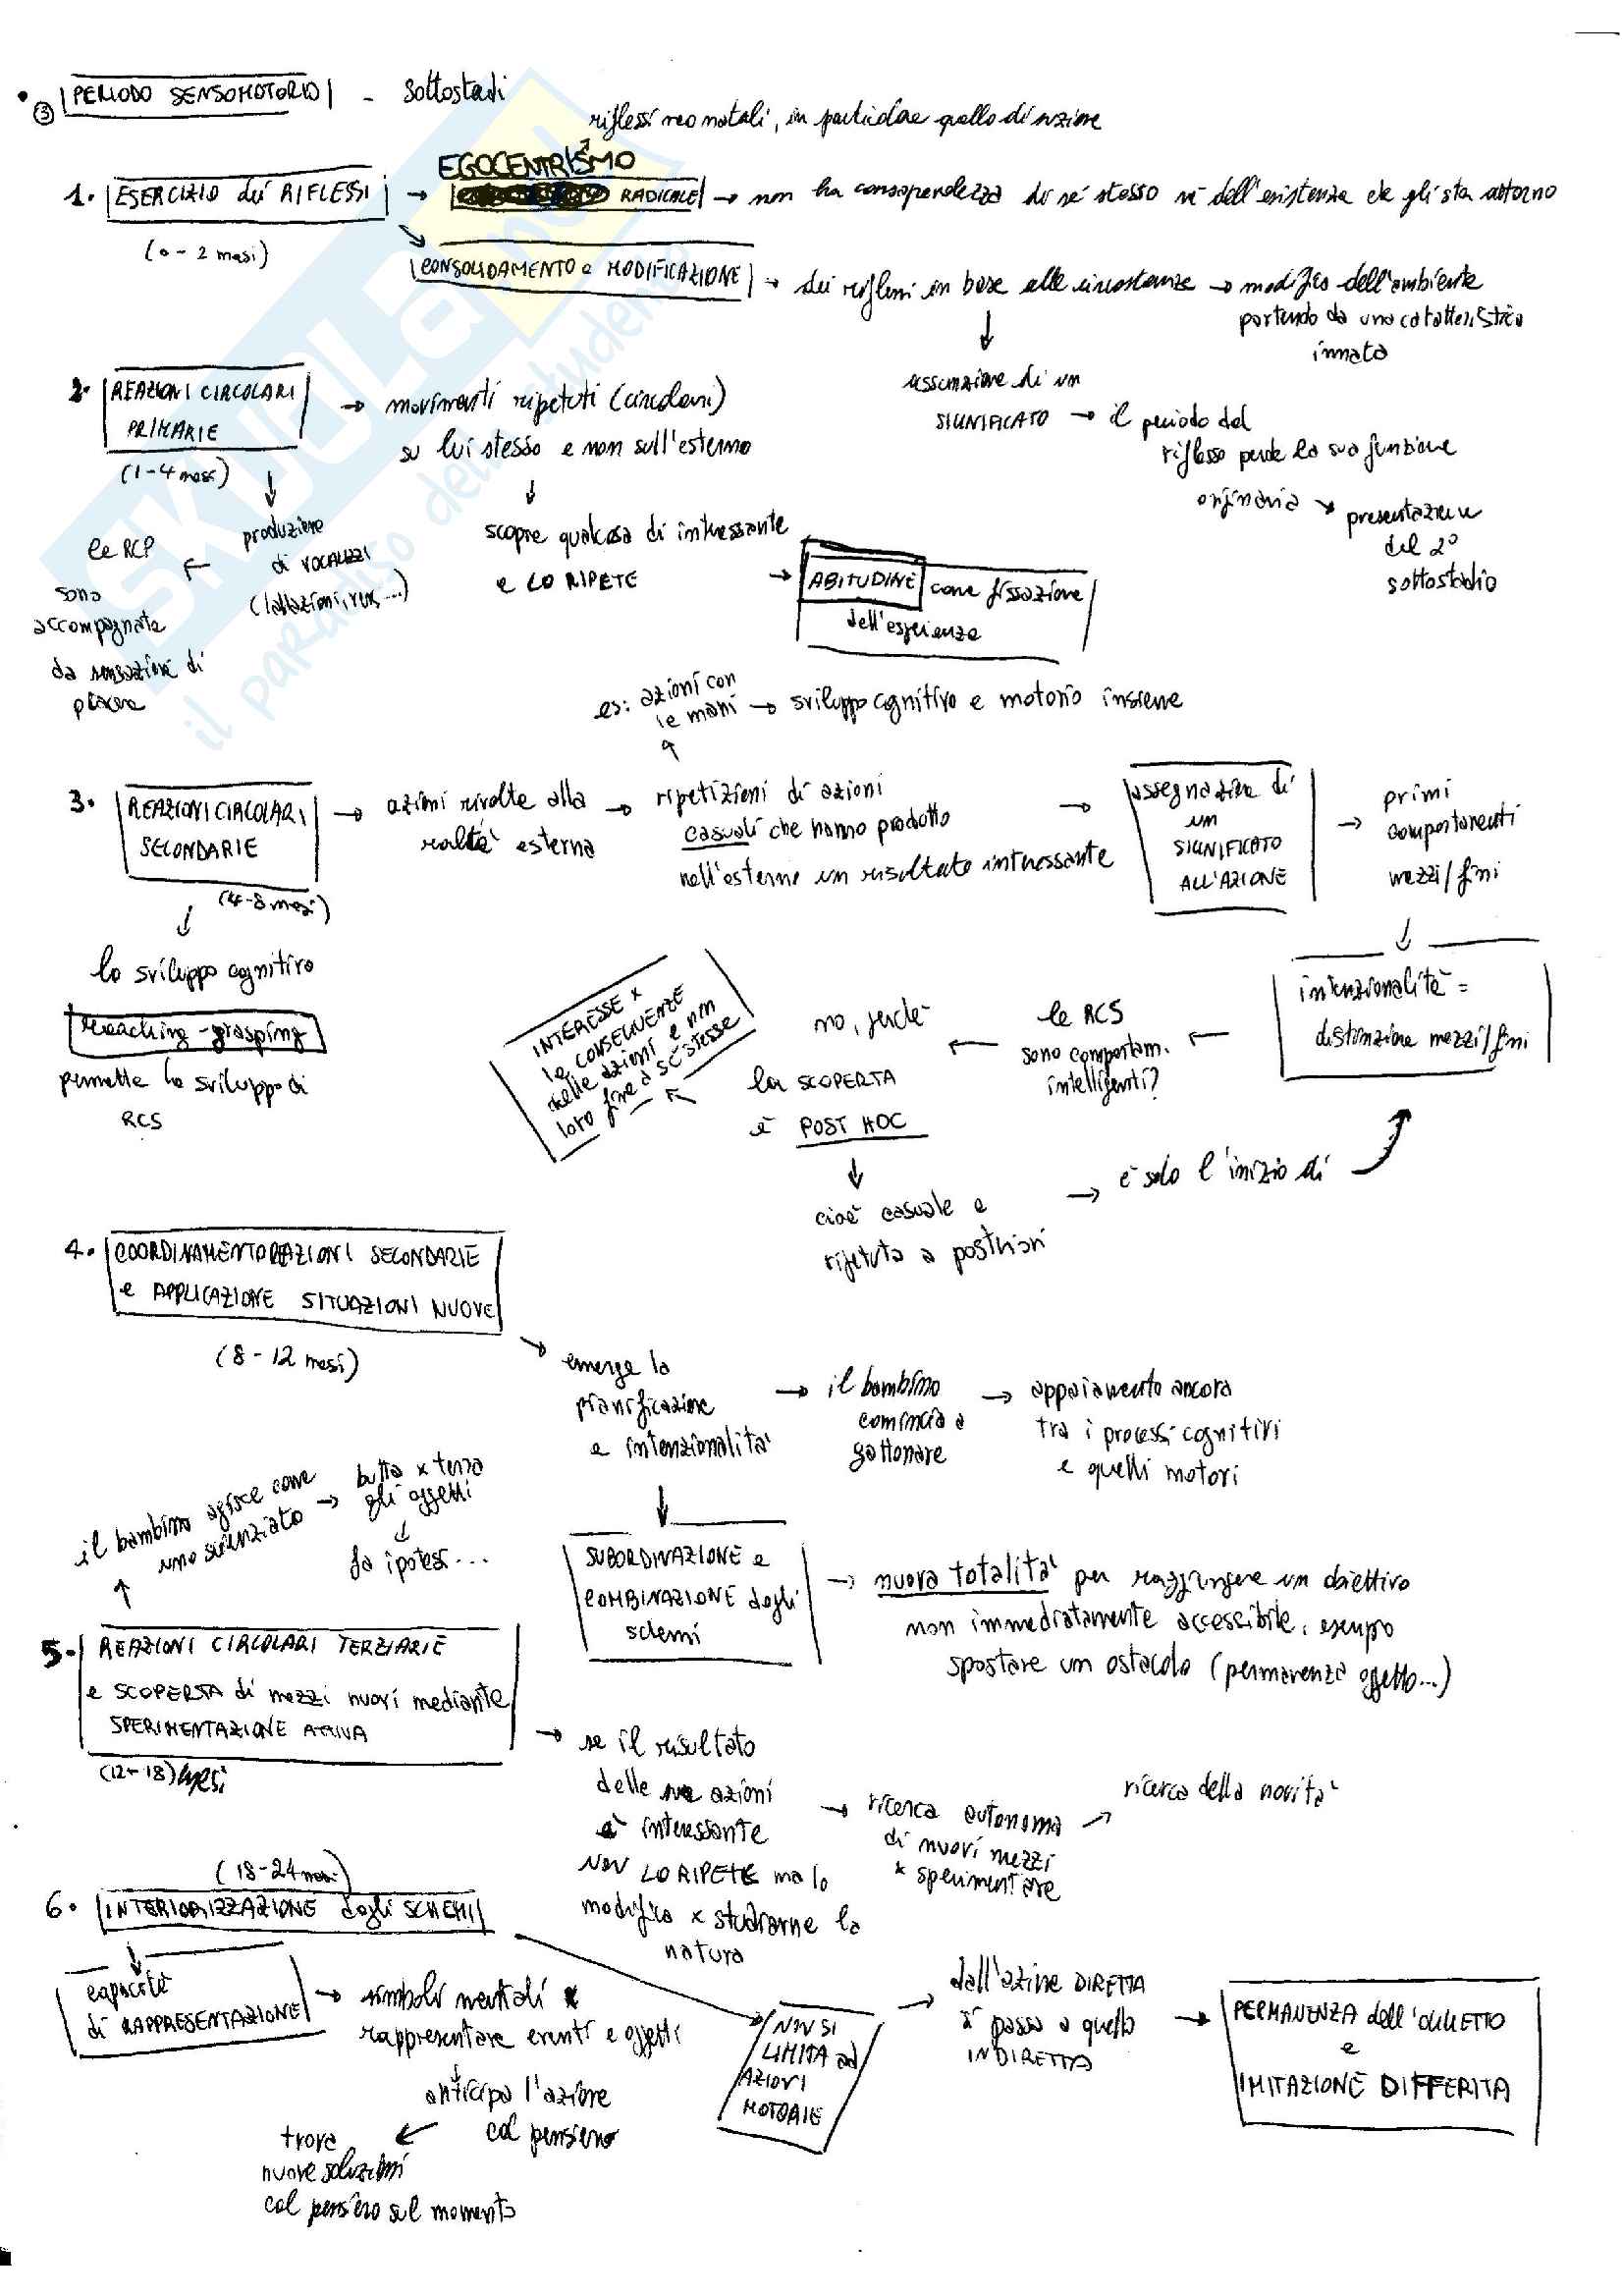 ③ PERIODO SENSOMOTORIO - Sottostadi
riflessi neonatali, in particolare quello di suzione
1. ESERCIZIO dei RIFLESSI → EGOCENTRISMO RADICALE → non ha consapevolezza di sé stesso né dell'esistenza che gli sta attorno
(0-2 mesi)
CONSOLIDAMENTO e MODIFICAZIONE → dei riflessi in base alle circostanze → modifica dell'ambiente
partendo da una caratteristica
innata
assunzione di un
SIGNIFICATO → il periodo del
riflesso perde la sua funzione
originaria → presentazione
del 2°
sottostadio
2. REAZIONI CIRCOLARI
PRIMARIE
(1-4 mesi)
→ movimenti ripetuti (circolari)
su lui stesso e non sull'esterno
scopre qualcosa di interessante
e LO RIPETE → ABITUDINE come fissazione
dell'esperienza
produzione
di VOCALIZZI
(lallazioni, versi...)
le RCP
sono
accompagnate
da sensazione di
piacere
es: azioni con
le mani → sviluppo cognitivo e motorio insieme
3. REAZIONI CIRCOLARI
SECONDARIE
(4-8 mesi)
→ azioni rivolte alla
realtà esterna
→ ripetizioni di azioni
casuali che hanno prodotto
nell'esterno un risultato interessante
→ assegnazione di
un
SIGNIFICATO
ALL'AZIONE
→ primi
comportamenti
mezzi/fini
intenzionalità =
distinzione mezzi/fini
← le RCS
sono comportam.
intelligenti?
← no, perché
la SCOPERTA
è POST HOC
INTERESSE x
le CONSEGUENZE
delle azioni e non
loro fine a se stesse
cioè casuale e
ripetuta a posteriori
→ è solo l'inizio di
lo sviluppo cognitivo
reaching-grasping
permette lo sviluppo di
RCS
4. COORDINAMENTO REAZIONI SECONDARIE
e APPLICAZIONE SITUAZIONI NUOVE
(8-12 mesi)
emerge la
pianificazione
e intenzionalità
→ il bambino
comincia a
gattonare
→ appaiamento ancora
tra i processi cognitivi
e quelli motori
SUBORDINAZIONE e
COMBINAZIONE degli
schemi
→ nuova totalità per raggiungere un obiettivo
non immediatamente accessibile, esempio
spostare un ostacolo (permanenza oggetto...)
il bambino agisce come
uno scienziato → butta x terra
gli oggetti
fa ipotesi...
5. REAZIONI CIRCOLARI TERZIARIE
e SCOPERTA di mezzi nuovi mediante
SPERIMENTAZIONE ATTIVA
(12-18) mesi
→ se il risultato
delle sue azioni
è interessante
NON LO RIPETE ma lo
modifica x studiarne la
natura
→ ricerca autonoma
di nuovi mezzi
x sperimentare
→ ricerca della novità
(18-24 mesi)
6. INTERIORIZZAZIONE degli SCHEMI
capacità
di RAPPRESENTAZIONE
→ simboli mentali x
rappresentare eventi e oggetti
anticipa l'azione
col pensiero
trova
nuove soluzioni
col pensiero sul momento
NON SI
LIMITA ad
AZIONI
MOTORIE
→ dall'azione DIRETTA
si passa a quella
INDIRETTA
→ PERMANENZA dell'OGGETTO
e
IMITAZIONE DIFFERITA
SKUOLA.nu
il paradiso dello studente